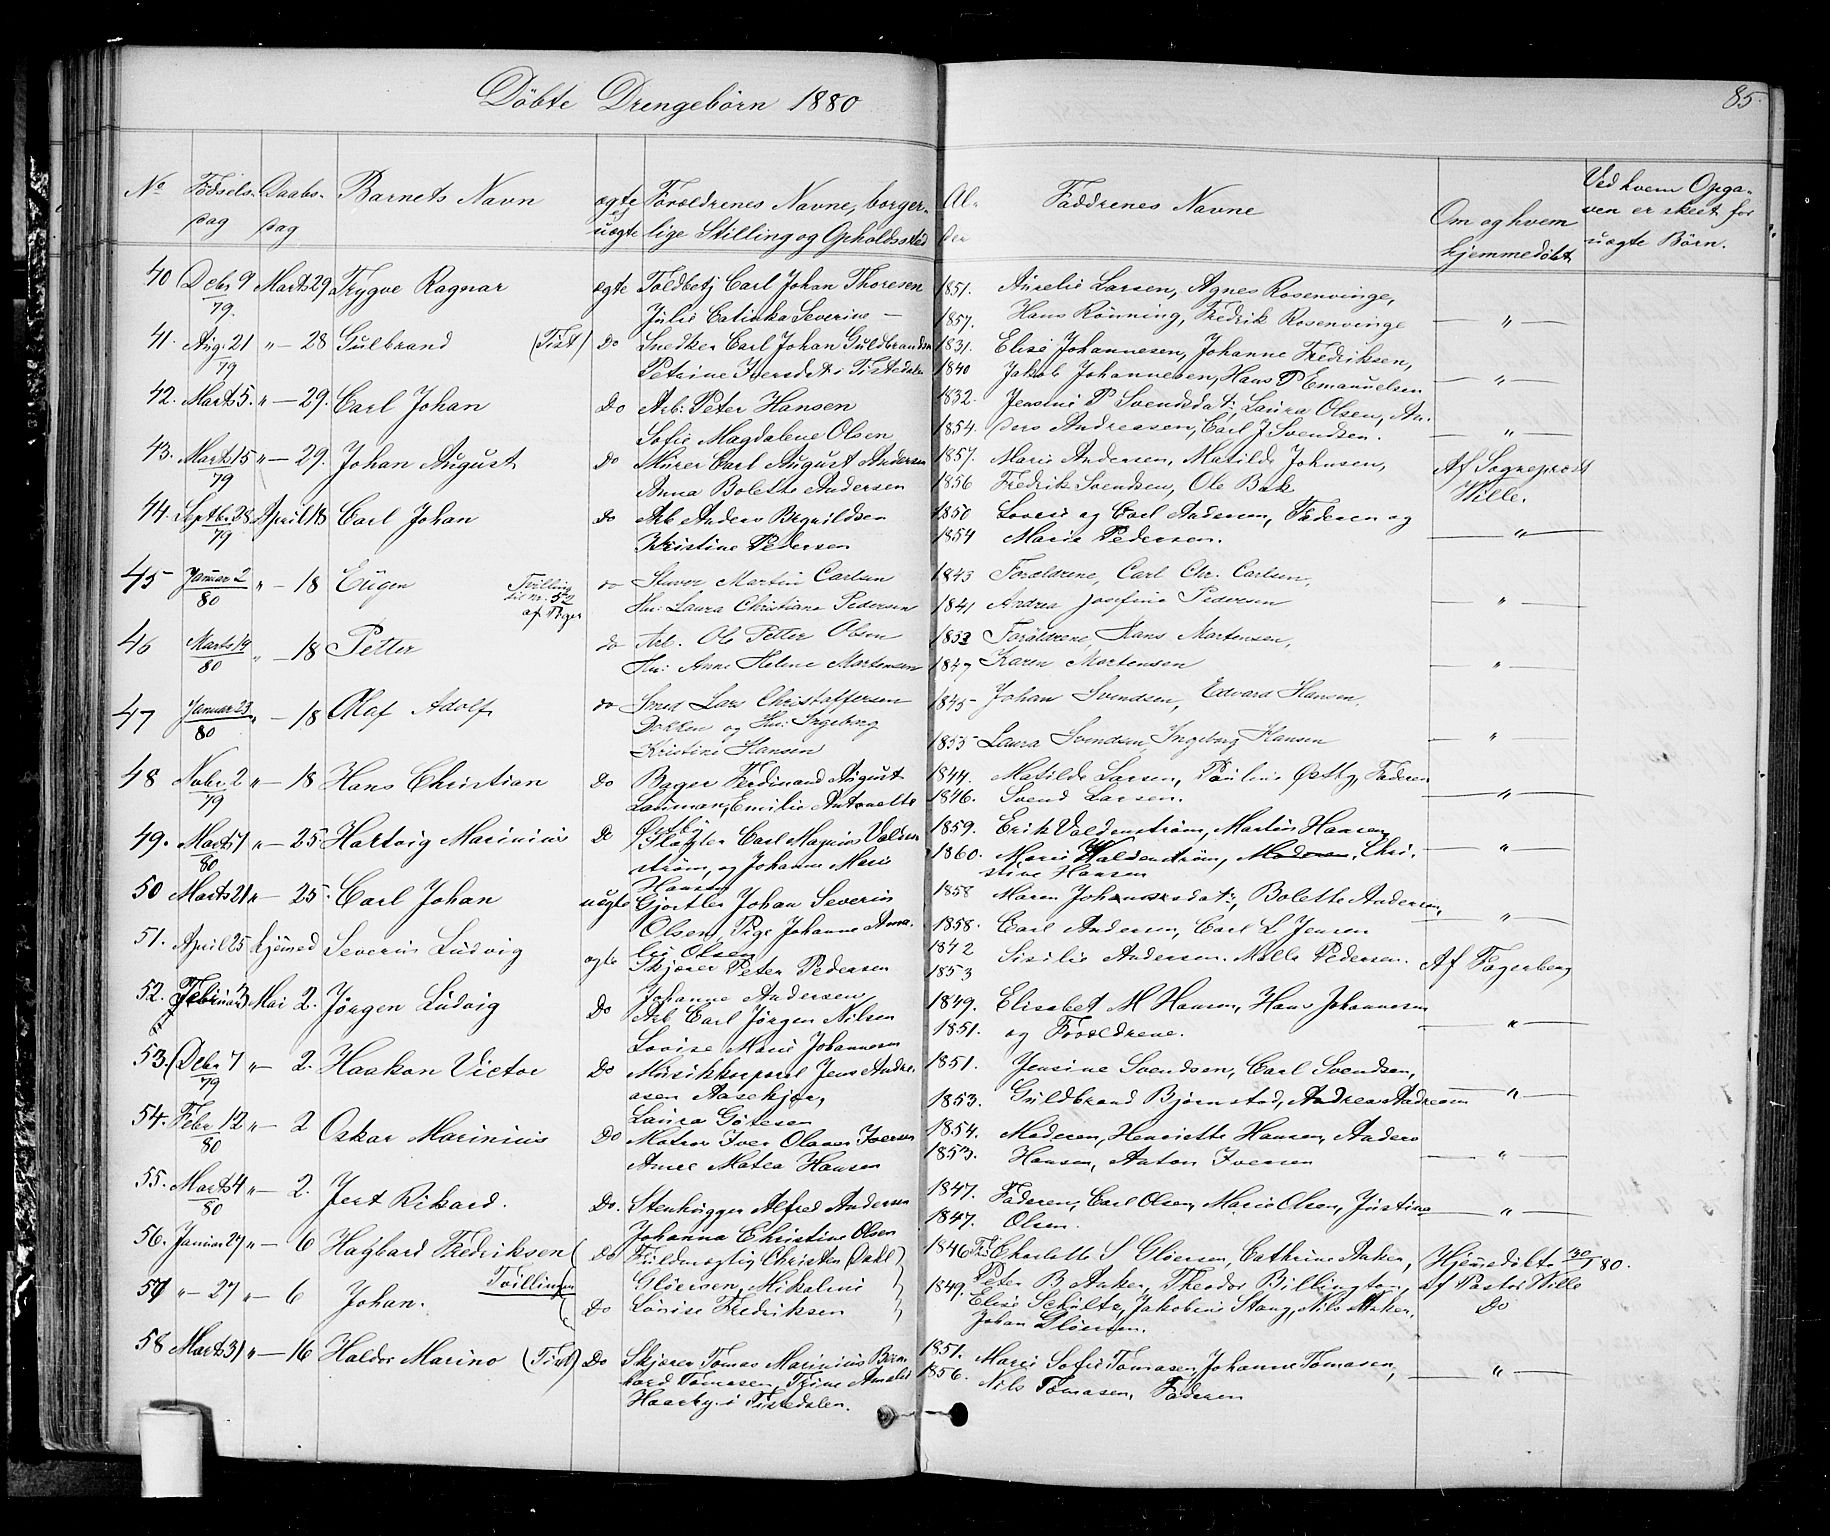 Döbte Drengebörn 1880
85.
No Födsels- dag Daabs- dag Barnets Navn ægte og uægte Forældrenes Navne, borger- lige Stilling og Opholdssted Al- der Faddrenes Navne Om og hvem hjemmedöbt Ved hvem Opga- ven er skeet for uægte Börn.
40 Debr 9 Marts 29 Trygve Ragnar ægte Toldbetj Carl Johan Thoresen 1851. Aurelie Larsen, Agnes Rosenvinge,
79. Julie Catinka Severine — 1857. Hans Rönning, Fredrik Rosenvinge — " —
41. Aug. 21 " — 28 Gulbrand (Tist) Do Snedker Carl Johan Guldbrandsen 1831. Elise Johannesen, Johanne Fredriksen,
79 Petrine Iversdat. i Tistedalen 1840 Jakob Johannesen, Hans P Emanuelsen — " —
42. Marts 5. " — 29. Carl Johan Do Arb: Peter Hansen 1832. Jensine P Svendsdat:, Laura Olsen, An-
Sofie Magdalene Olsen 1854. ders Andreassen, Carl J Svendsen. — " —
43. Marts 15 " — 29. Johan August Do Murer Carl August Andersen 1857. Marie Andersen, Matilde Johnsen, Af Sogneprest
79 Anna Bolette Andersen 1856 Fredrik Svendsen, Ole Bak Wille.
44. Septbr 28 April 18 Carl Johan Do Arb Anders 1850 Lovise og Carl Andersen, Faderen og
79 Kristine Pedersen 1854 Marie Pedersen. — " —
45 Januar 2 " — 18 Eugen Tvilling til nr. 52 af Piger do Stuver Martin Carlsen 1843 Forældrene, Carl Chr. Carlsen,
80 Hu: Laura Christiane Pedersen 1841 Andrea Josefine Pedersen — " —
46 Marts 14 " — 18 Petter do Arb. Ole Petter Olsen 1853 Forældrene, Hans Martensen,
80 Hu: Anne Helene Martensen 1847 Karen Martensen — " —
47 Januar 23 " — 18 Olaf Adolf do Smed Lars Christoffersen 1845 Johan Svendsen, Edvard Hansen,
80 Dokken og Hu: Ingeborg
Kristine Hansen 1855 Laura Svendsen, Ingeborg Hansen — " —
48 Novbr 2 " — 18 Hans Christian Do Bager Ferdinand August 1844. Matilde Larsen, Pauline Østby, Faderen
79 Lauman, Emilie Antonette 1846. Svend Larsen. — " —
Østby
49. Marts 7 " — 25 Hartvig Marinius Do Slagter Carl Magnus Valden- 1859. Erik Valdenström, Martin Hansen,
80 ström, og Johanne Marie 1860. Marie Waldenström, Moderen, Chri- — " —
Hansen stine Hansen
50 Marts 21 " — 25. Carl Johan uægte Gjørtler Johan Severin 1858 Maren Johannesdat:, Bolette Andersen,
Olsen, Pige Johanne Ama- 1858. Carl Andersen, Carl L Jensen — " —
lie Olsen
51. April 25 hjemmed Severin Ludvig ægte Skjærer Peter Pedersen 1842 Sisilie Andersen. Malle Pedersen. Af Fagerberg
Johanne Andersen 1853
52. Februar 3 Mai 2. Jørgen Ludvig Do Arb Carl Jørgen Nilsen 1849. Elisabet M Hansen, Hans Johannesen
Lovise Marie Johannesen 1851. og Forældrene. — " —
53. Debr 7 " — 2. Haakon Victor Do Musikkorporal Jens Andre- 1851. Jensine Svendsen, Carl Svendsen,
79 asen Aasekjær,
Laura Götesen 1853. Guldbrand Bjørnstad, Andreas Andresen — " —
54. Febr 12 " — 2 Oskar Marinius Do Matros Iver Olaves Iversen 1854. Moderen, Henriette Hansen, Anders
80 Anne Matea Hansen 1853. Hansen, Anton Iversen — " —
55. Marts 4 " — 2. Jert Rikard. Do. Stenhugger Alfred Andersen 1847. Faderen, Carl Olsen, Marie Olsen, Justine
80 Johanna Christine Olsen 1847. Olsen. — " —
56. Januar 27 " — 6 Hagbard Fredriksen Do Fuldmægtig Christen Dahl 1846 Fr. Charlotte S Gløersen, Cathrine Anker, Hjemmedöbt 30/1 80.
Tvillinger Gløersen, Mikaline 1849. Peter B Anker, Theodor Billington, af Pastor Wille
57 " — 27 " — 6 Johan. Do Lovise Fredriksen Elise Schults, Jakobine Stang, Nils Anker, Do
Johan Gløersen.
58 Marts 31 " — 16 Haldor Marino (Tist) Do Skjærer Tomas Marinius Bern- 1851. Marie Sofie Tomasen, Johanne Tomasen,
hard Tomasen, Trine Amalie 1856. Nils Tomasen, Faderen — " —
Haarby i Tistedalen.